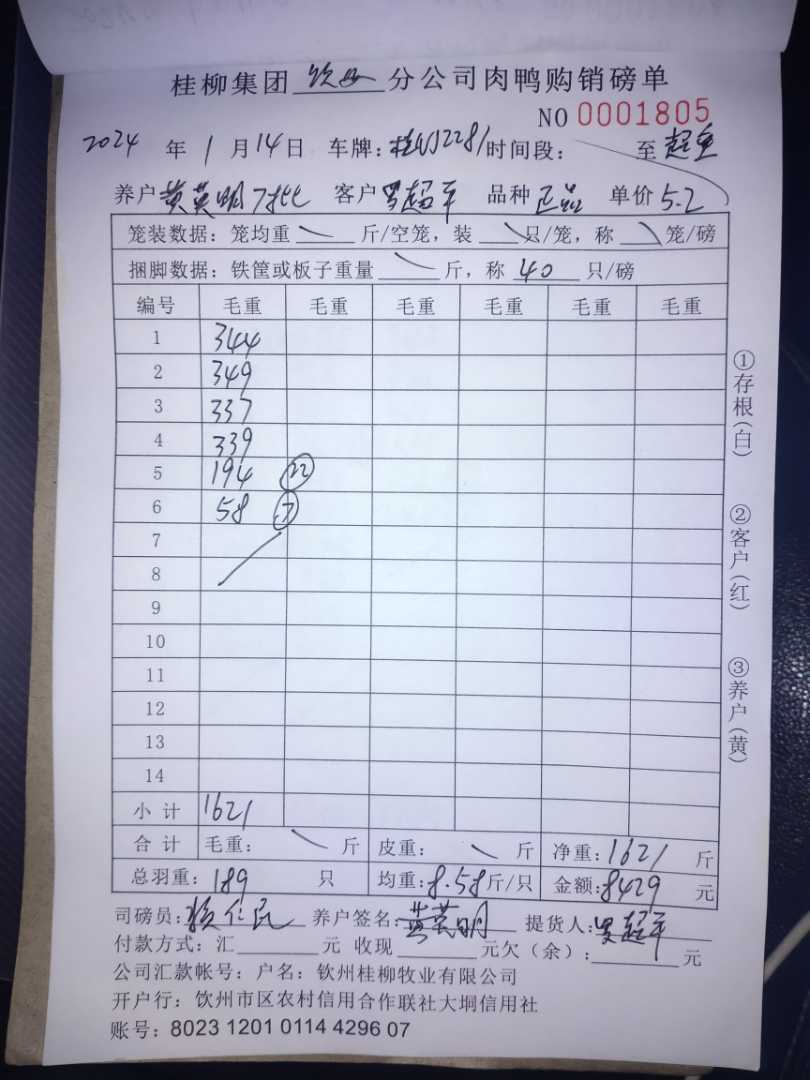 桂柳集团 钦州 分公司肉鸭购销磅单
NO 0001805
2024 年 1 月 14 日 车牌: 2281 时间段: 至
养户 黄英明 7批 客户 罗超平 品种 正品 单价 5.2
笼装数据: 笼均重 斤/空笼, 装 只/笼, 称 笼/磅
捆脚数据: 铁筐或板子重量 斤, 称 40 只/磅
编号 毛重 毛重 毛重 毛重 毛重 毛重
1 344
2 349
3 337
4 339
5 194 22
6 58 7
7
8
9
10
11
12
13
14
小计 1621
合计 毛重: 斤 皮重: 斤 净重: 1621 斤
总羽重: 189 只 均重: 8.58 斤/只 金额: 8429 元
司磅员: 养户签名: 黄英明 提货人: 罗超平
付款方式: 汇 元 收现 元欠(余): 元
公司汇款帐号: 户名: 钦州桂柳牧业有限公司
开户行: 饮州市区农村信用合作联社大垌信用社
账号: 8023 1201 0114 4296 07
①存根(白)
②客户(红)
③养户(黄)